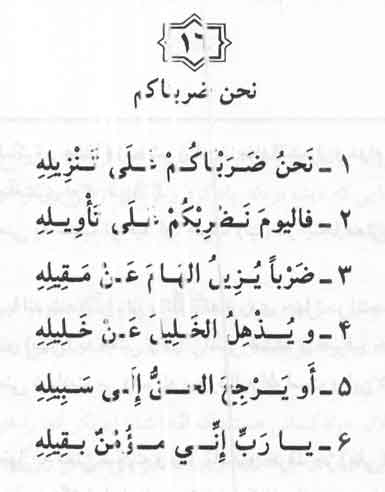 ١٦
نحن ضرباكم
١ - نَحْنُ ضَرَبَاكُمْ عَلَى تَنْزِيلِهِ
٢ - فاليومَ نَضْرِبكُمْ عَلَى تَأْوِيلِهِ
٣ - ضَرْباً يُزِيلُ الهَامَ عَنْ مَقِيلِهِ
٤ - و يُذْهِلُ الخَلِيلَ عَنْ خَلِيلِهِ
٥ - أَو يَرْجِعَ الحَقُّ إِلَى سَبِيلِهِ
٦ - يا رَبِّ إِنِّي مُؤْمِنٌ بقِيلِهِ